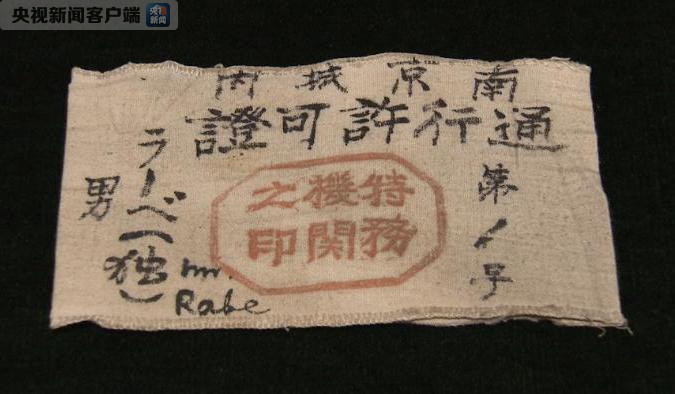 央视新闻客户端
央视
新闻
南京城内
通行許可證
第1号
特務
機関
之印
ラーベ(独)
男
mr.
Rabe